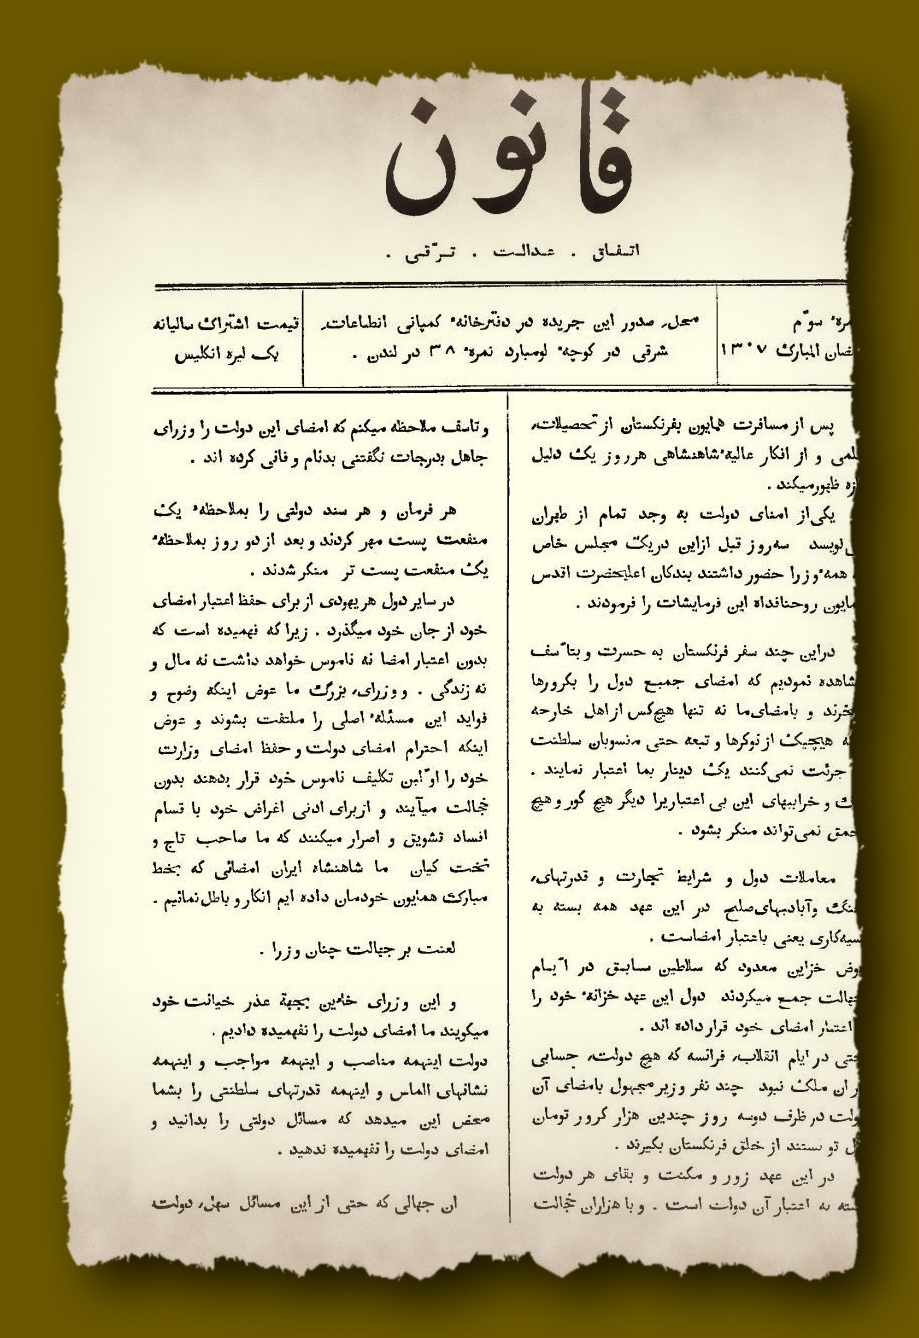 قانون
اتفاق . عدالت . ترّقی .
نمرهٔ سوّم
رمضان المبارک ۱۳۰۷
محل صدور این جریده در دفترخانهٔ کمپانی انطباعات
شرقی در کوچهٔ لومبارد نمرهٔ ۳۸ در لندن .
قیمت اشتراک سالیانه
یک لیره انکلیس
پس از مسافرت همایون بفرنکستان از تحصیلات
علمی و از افکار عالیهٔ شاهنشاهی هرروز یک دلیل
تازه ظهورمیکند .
یکی‌از امنای دولت به وجد تمام از طهران
می‌نویسد سه‌روز قبل ازاین دریک مجلس خاص
که همهٔ وزرا حضور داشتند بندکان اعلیحضرت اقدس
همایون روحنافداه این فرمایشات را فرمودند .
دراین چند سفر فرنکستان به حسرت و بتاّسف
مشاهده نمودیم که امضای جمیع دول را بکرورها
میخرند و بامضای‌ما نه تنها هیچکس از اهل خارجه
که هیچیک از نوکرها و تبعه حتی منسوبان سلطنت
جرئت نمی‌کنند یک دینار بما اعتبار نمایند .
و خرابیهای این بی اعتباریرا دیگر هیچ کور و هیچ
احمق نمی‌تواند منکر بشود .
معاملات دول و شرایط تجارت و قدرتهای
جنک وآبادیهای‌صلح در این عهد همه بسته به
نسیه‌کاری یعنی باعتبار امضاست .
عوض خزاین معدود که سلاطین سابق در اّیام
جهالت جمع میکردند دول این عهد خزانهٔ خود را
اعتبار امضای خود قرار داده اند .
حتی در ایام انقلاب فرانسه که هیچ دولت حسابی
در ان ملک نبود چند نفر وزیر مجهول بامضای آن
دولت در ظرف دوسه روز چندین هزار کرور تومان
تو نستند از خلق فرنکستان بگیرند .
در این عهد زور و مکنت و بقای هر دولت
بسته به اعتبار آن دولت است . و با هزاران خجالت
و تاسف ملاحظه میکنم که امضای این دولت را وزرای
جاهل بدرجات نگفتنی بدنام و فانی کرده اند .
هر فرمان و هر سند دولتی را بملاحظهٔ یک
منفعت پست مهر کردند و بعد از دو روز بملاحظهٔ
یک منفعت پست تر منکر شدند .
در سایر دول هر یهودی از برای حفظ اعتبار امضای
خود از جان خود میگذرد . زیرا که فهمیده است که
بدون اعتبار امضا نه ناموس خواهد داشت نه مال و
نه زندگی . و وزرای بزرگ ما عوض اینکه وضوح و
فواید این مسئلهٔ اصلی را ملتفت بشوند و عوض
اینکه احترام امضای دولت و حفظ امضای وزارت
خود را اوّلین تکلیف ناموس خود قرار بدهند بدون
خجالت میآیند و ازبرای ادنی اغراض خود با قسام
افساد تشویق و اصرار میکنند که ما صاحب تاج و
تخت کیان ما شاهنشاه ایران امضائی که بخط
مبارک همایون خودمان داده ایم انکار و باطل نمائیم .
لعنت بر جهالت چنان وزرا .
و این وزرای خائین بجهة عذر خیانت خود
میکویند ما امضای دولت را نفهمیده دادیم .
دولت اینهمه مناصب و اینهمه مواجب و اینهمه
نشانهای الماس و اینهمه قدرتهای سلطنتی را بشما
محض این میدهد که مسائل دولتی را بدانید و
امضای دولت را نفهمیده ندهید .
ان جهالی که حتی از این مسائل سهل دولت